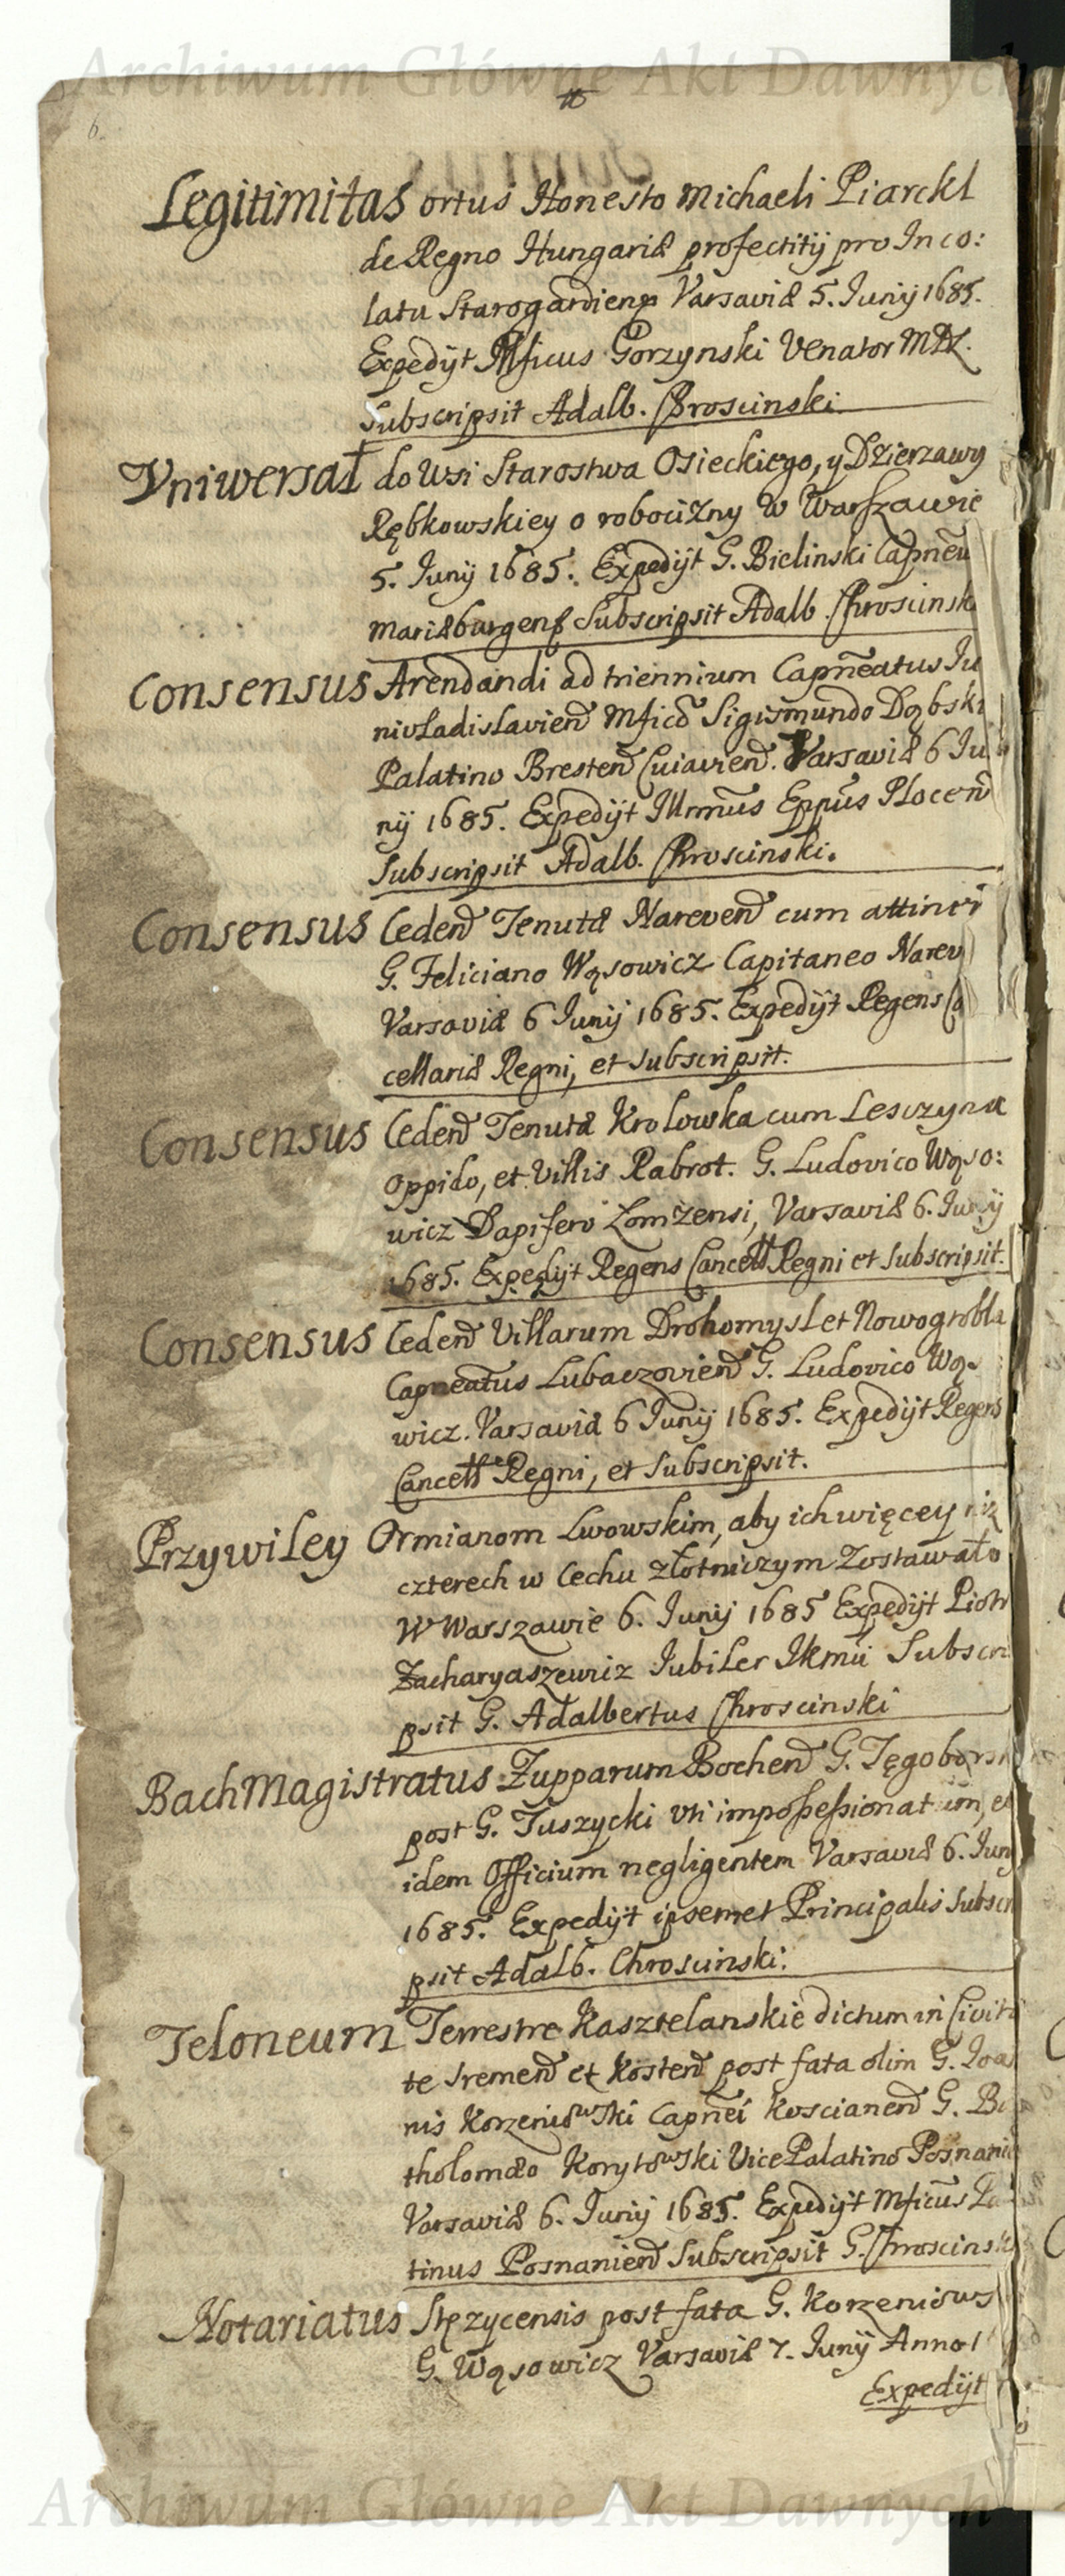 Archiwum Główne Akt Dawnych
6.
Legitimitas ortus Honesto Michaeli Piarckl
de Regno Hungariæ profectitij pro Inco:
latu Starogardiens Varsaviæ 5. Junij 1685.
Expedijt Mficus Gorzynski Venator MDL.
Subscripsit Adalb. Chroscinski.
Vniwersał do Wsi Starostwa Osieckiego, y Dzierzawy
Rębkowskiey o robocizny w Warszawie
5. Junij 1685. Expedijt G. Bielinski Capneu
Mariæburgens Subscripsit Adalb. Chroscinsk
Consensus Arendandi ad triennium Capneatus Ju
nivladislavien Mfico Sigismundo Dąbski
Palatino Bresten Cuiavien. Varsaviæ 6 Ju
nij 1685. Expedijt Illrmus Eppus Plocen
Subscripsit Adalb. Chroscinski.
Consensus Ceden Tenutæ Nareven cum attinen
G. Feliciano Wąsowicz Capitaneo Narev
Varsaviæ 6 Junij 1685. Expedijt Regens Ca
cellariæ Regni, et subscripsit.
Consensus Ceden Tenutæ Krolowska cum Lesczyna
oppido, et Villis Rabrot. G. Ludovico Wąso:
wicz Dapifero Łomżensi, Varsaviæ 6. Junij
1685. Expedijt Regens Cancell Regni et Subscripsit.
Consensus Ceden Villarum Drohomysl et Nowogrobla
Capneatus Lubaczovien G. Ludovico Wąs
wicz. Varsaviæ 6 Junij 1685. Expedijt Regens
Cancellæ Regni, et Subscripsit.
Przywiley Ormianom Lwowskim, aby ich więcey niz
czterech w Cechu złotniczym Zostawało
W Warszawie 6. Junij 1685 Expedijt Piotr
Zacharyaszewicz Jubiler JKmći Subscri
psit G. Adalbertus Chroscinski
BachMagistratus Zupparum Bochen G. Tęgoborsk
post G. Tuszycki vti impossessionatum, et
idem Officium negligentem Varsaviæ 6. Junij
1685. Expedijt ipsemet Principalis Subscri
psit Adalb. Chroscinski:
Teloneum Terrestre Kasztelanskie dictum in Civita
te Sremen et Kosten post fata olim G. Joa
nis Korzeniowski Capnei Koscianen G. Ba
tholomæo Korytowski Vice Palatino Posnanie
Varsaviæ 6. Junij 1685. Expedijt Mficus Pa
tinus Posnanien Subscripsit G. Chroscinsk
Notariatus Stęzycensis post fata G. Korzeniows
G. Wąsowicz Varsaviæ 7. Junij Anno 1
Expedijt
Archiwum Główne Akt Dawnych